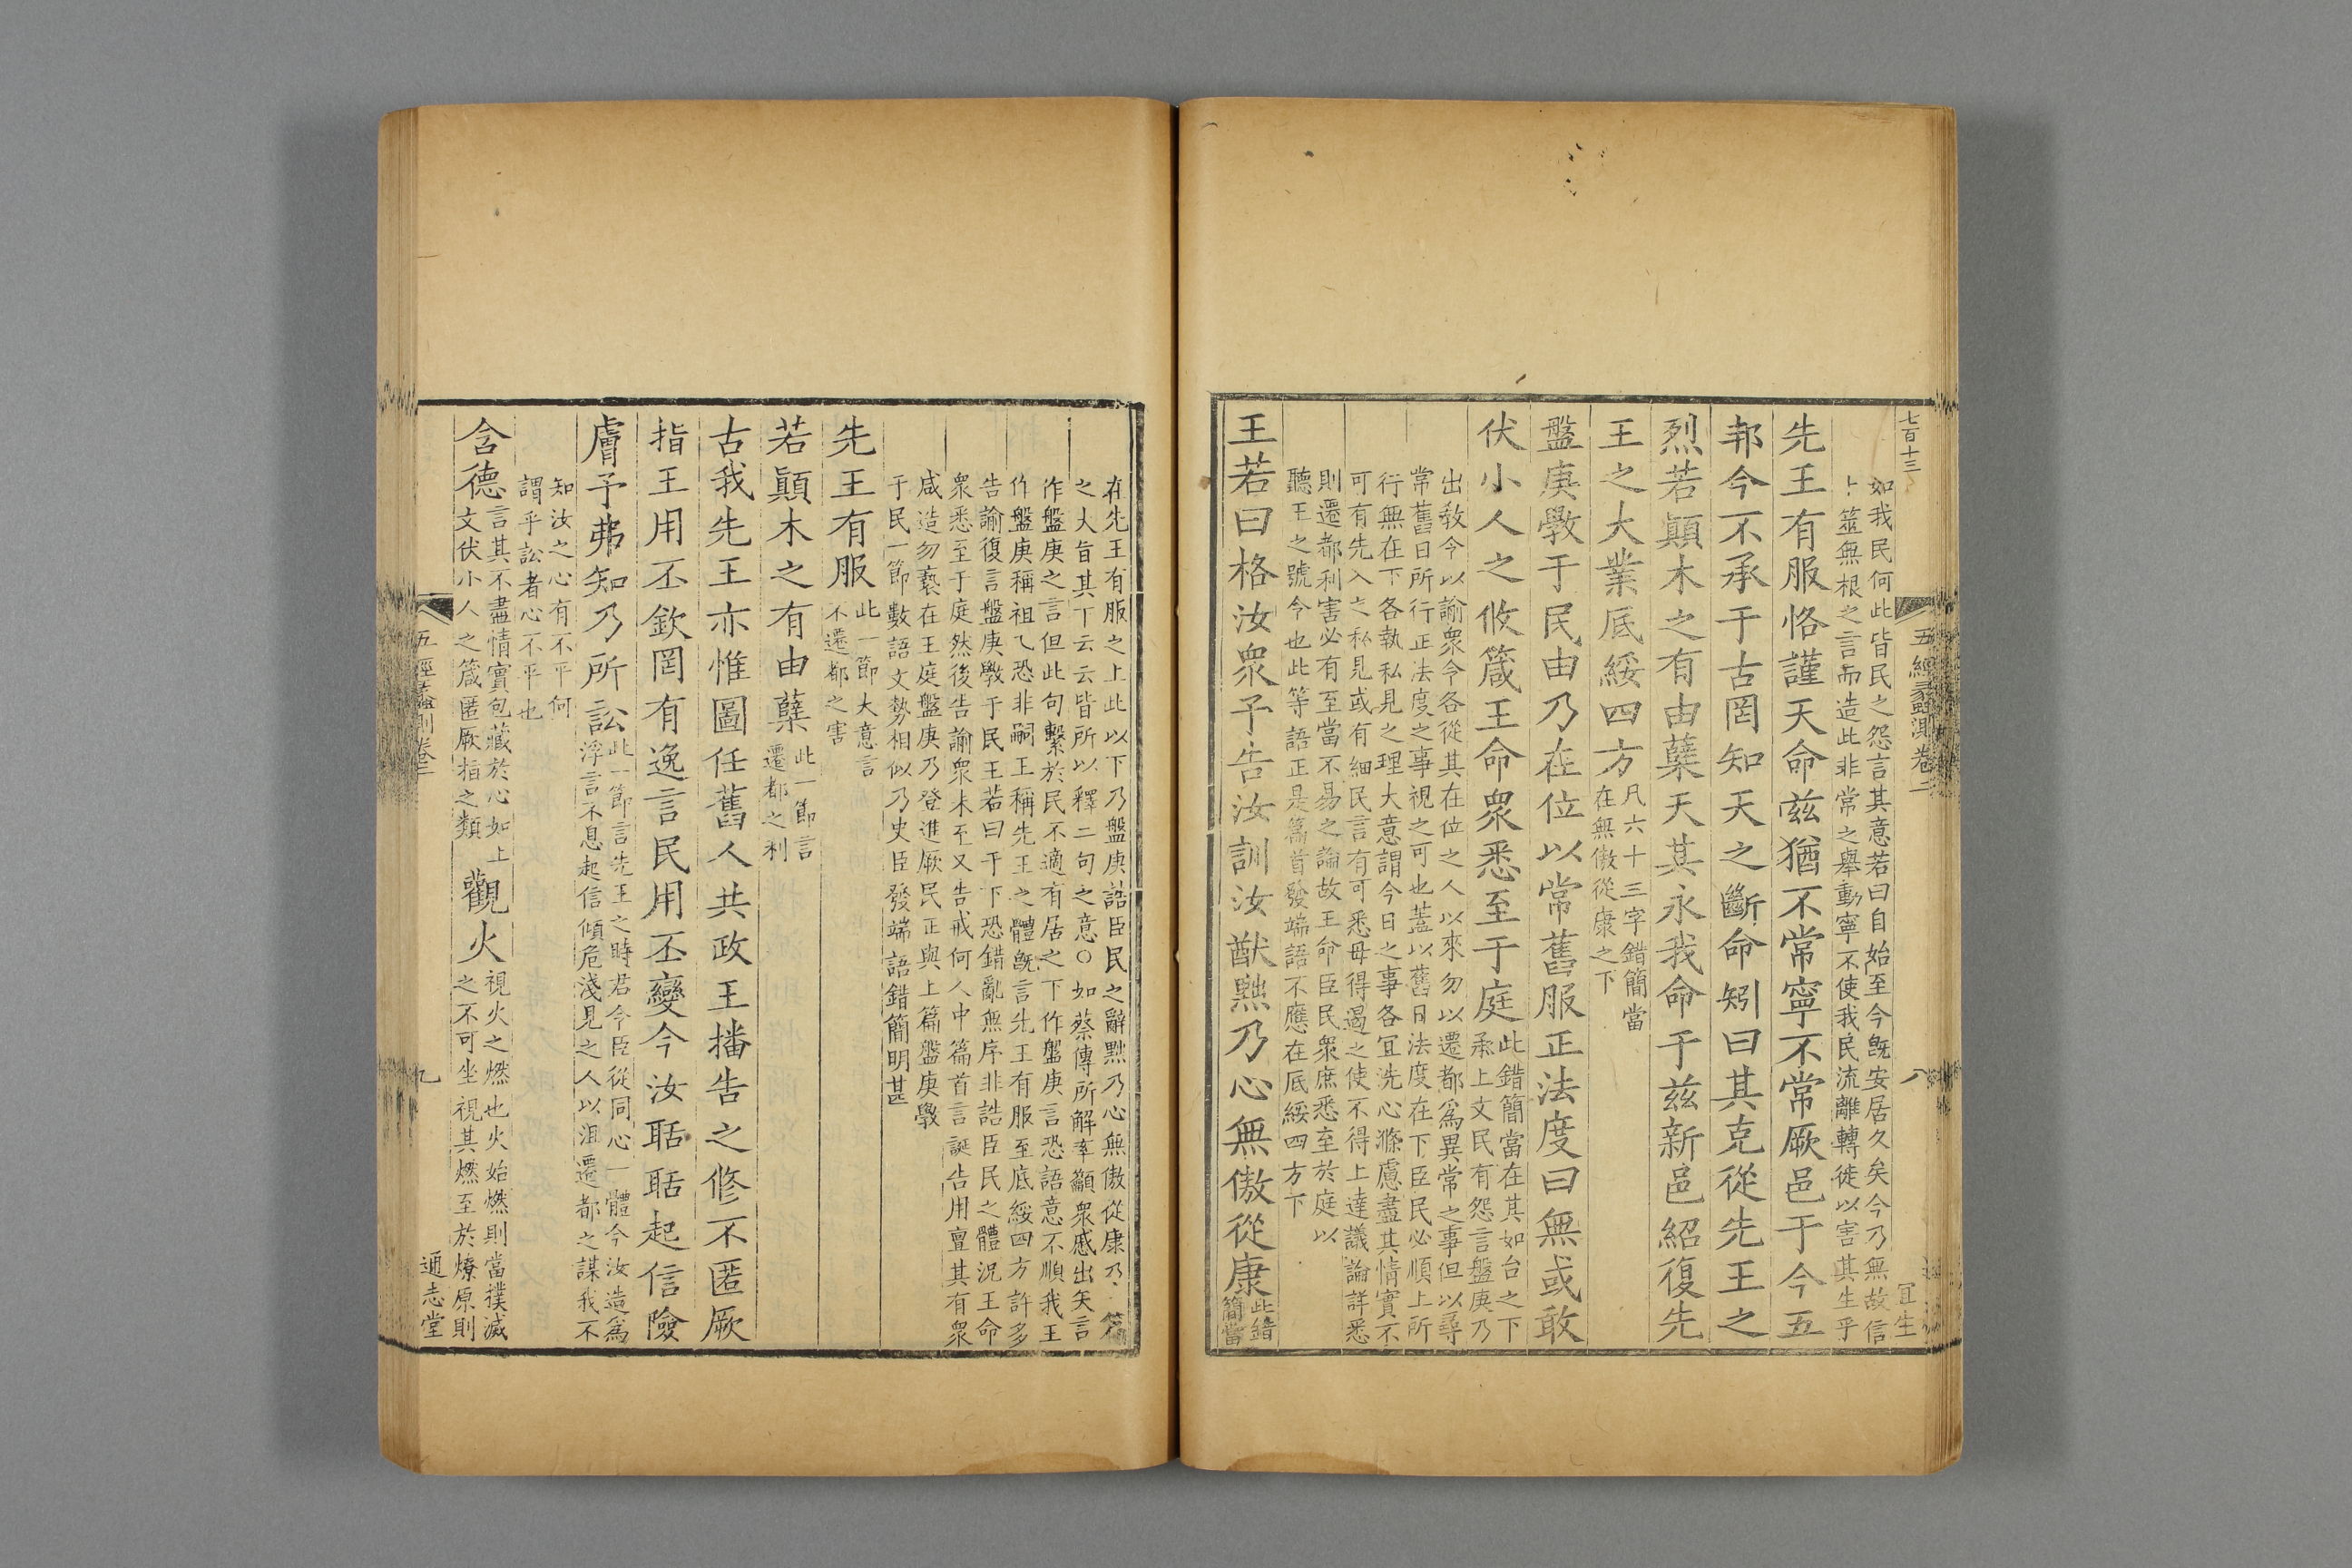 七百十三
五經蠡測卷二
八
宜生
如我民何此皆民之怨言其意若曰自始至今旣安居久矣今乃無故信
卜筮無根之言而造此非常之舉動寧不使我民流離轉徙以害其生乎
先王有服恪謹天命兹猶不常寧不常厥邑于今五
邦今不承于古罔知天之斷命矧曰其克從先王之
烈若顚木之有由蘖天其永我命于兹新邑紹復先
王之大業底綏四方凡六十三字錯簡當
在無傲從康之下
盤庚斆于民由乃在位以常舊服正法度曰無或敢
伏小人之攸箴王命衆悉至于庭此錯簡當在其如台之下
承上文民有怨言盤庚乃
出敎令以諭衆令各從其在位之人以來勿以遷都爲異常之事但以尋
常舊日所行正法度之事視之可也蓋以舊日法度在下臣民必順上所
行無在下各執私見之理大意謂今日之事各宜洗心滌慮盡其情實不
可有先入之私見或有細民言有可悉毋得遏之使不得上達議論詳悉
則遷都利害必有至當不易之論故王命臣民衆庶悉至於庭以
聽王之號令也此等語正是篇首發端語不應在底綏四方下
王若曰格汝衆予告汝訓汝猷黜乃心無傲從康此錯
簡當
在先王有服之上此以下乃盤庚誥臣民之辭黜乃心無傲從康乃一篇
之大旨其下云云皆所以釋二句之意○如蔡傳所解率籲衆慼出矢言
作盤庚之言但此句繫於民不適有居之下作盤庚言恐語意不順我王
作盤庚稱祖乙恐非嗣王稱先王之體旣言先王有服至底綏四方許多
告諭復言盤庚斆于民王若曰于下恐錯亂無序非誥臣民之體況王命
衆悉至于庭然後告諭衆未至又告戒何人中篇首言誕告用亶其有衆
咸造勿褻在王庭盤庚乃登進厥民正與上篇盤庚斆
于民一節數語文勢相似乃史臣發端語錯簡明甚
先王有服此一節大意言
不遷都之害
若顚木之有由蘖此一節言
遷都之利
古我先王亦惟圖任舊人共政王播告之修不匿厥
指王用丕欽罔有逸言民用丕變今汝聒聒起信險
膚予弗知乃所訟此一節言先王之時君今臣從同心一體今汝造爲
浮言不息起信傾危淺見之人以沮遷都之謀我不
知汝之心有不平何
謂乎訟者心不平也
含德言其不盡情實包藏於心如上
文伏小人之箴匿厥指之類
觀火視火之燃也火始燃則當撲滅
之不可坐視其燃至於燎原則
五經蠡測卷二
九
通志堂